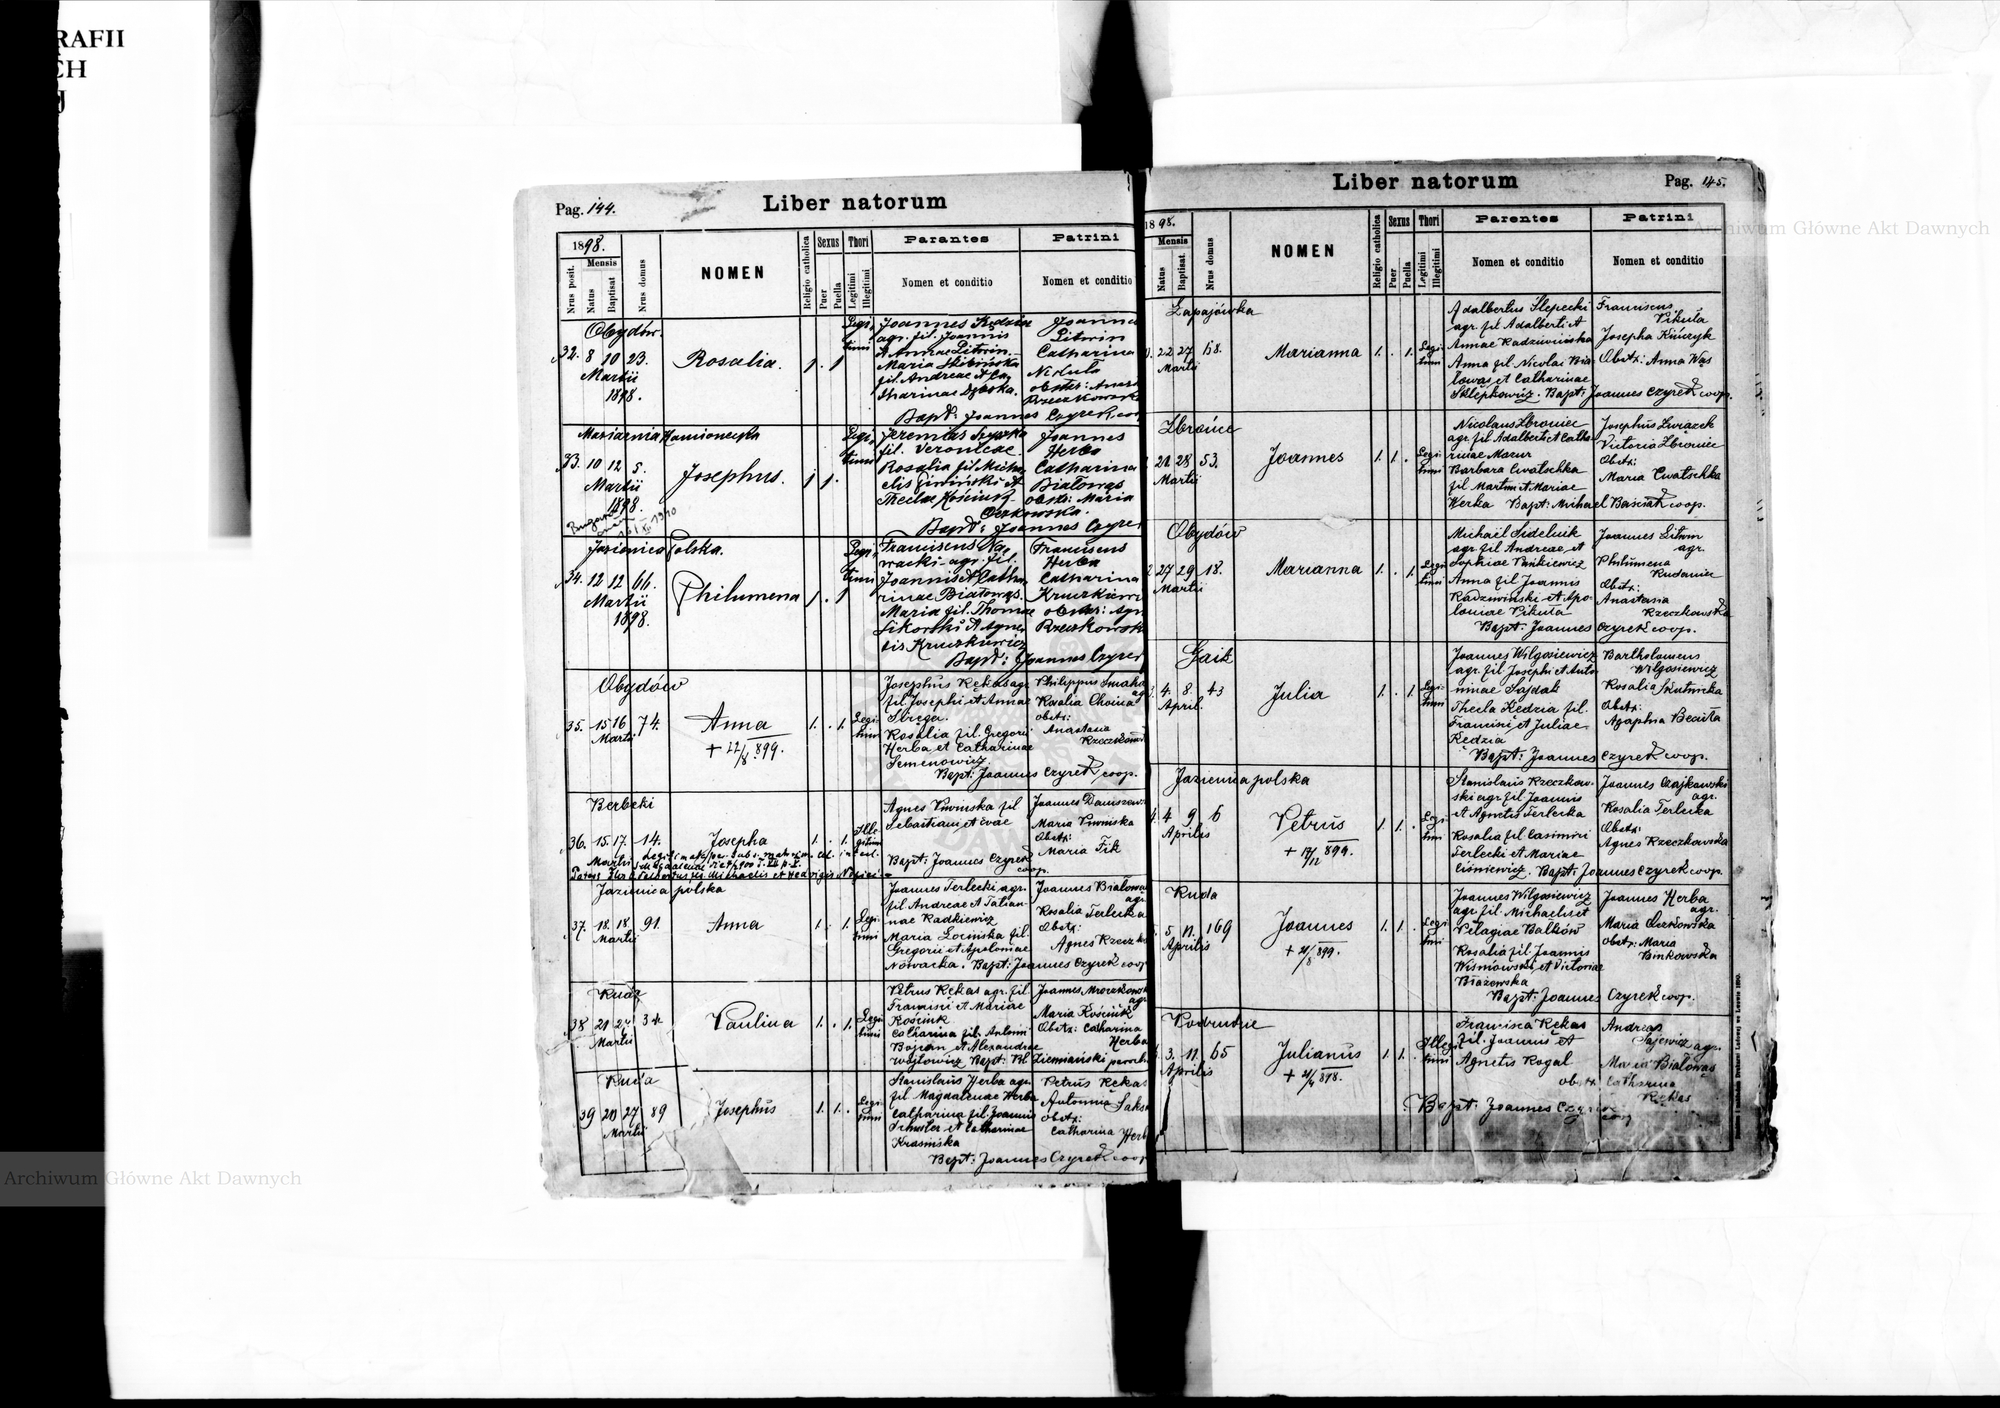 RAFII
CH
J
Archiwum Główne Akt Dawnych
Pag. 144.
Liber natorum
1898.
Nrus posit.
Mensis
Natus
Baptisat
Nrus domus
NOMEN
Religio catholica
Sexus
Puer
Puella
Thori
Legitimi
Illegitimi
Parentes
Nomen et conditio
Patrini
Nomen et conditio
Obydów.
32. 8 10 23.
Martii
1898.
Rosalia.
1 . 1
Legi
timi
Joannes Kędzia
agr. fil. Joannis
et Annae Litwin
Maria
fil. Andreae et Ca
tharinae
Joannes
Litwin
Catharina
Nikuła
obstr: Anast
Rzeczkowska
Bapt: Joannes Czyrek coop
33. 10 12 5.
Martii
1898.
Josephus.
1 1 .
Legi
timi
Jeremias
fil. Veronicae
Rosalia fil. Micha
elis et
Theclae Kościuk
Joannes
Herba
Catharina
Białowąs
obstr: Maria
Oczkowska.
Bapt: Joannes Czyrek
Jazienica Polska.
34. 12 12 66.
Martii
1898.
Philumena
1 . 1
Legi
timi
Franciscus No
wacki agr. fil.
Joannis et Catha
rinae Białowąs.
Maria fil. Thomae
Sikorski et Agne
tis Kruczkiewicz
Franciscus
Herba
Catharina
Kruczkiewi
obstr: Agn
Rzeczkowsk
Bapt: Joannes Czyrek
Obydów
35. 15 16 74.
Martii
Anna
+ 22/8 899.
1. . 1.
Legi
timi
Josephus Rękas agr
fil Josephi et Annae
Stręga.
Rosalia fil. Gregorii
Herba et Catharinae
Semenowicz.
Philippus Smaha
ag
Rosalia Choina
obstr:
Anastasia
Rzeczkows
Bapt: Joannes Czyrek coop.
Berbeki
36. 15. 17. 14.
Martii
Josepha
1. . 1.
Ille
gitimi
Agnes Uwińska fil
Sebastiani et Evae
Joannes Daniszew
Maria Uwińska
Obstr:
Maria Fik
Bapt: Joannes Czyrek
coop.
Jazienica polska
37. 18. 18. 91.
Martii
Anna
1. . 1.
Legi
timi
Joannes Terlecki agr.
fil. Andreae et Tatian
nae Radkiewicz
Maria Łocińska fil.
Gregorii et Apoloniae
Nowacka. Bapt: Joannes Czyrek coop
Joannes Białowąs
agr.
Rosalia Terlecka
Obstr:
Agnes Rzeczko
Ruda
38 21 27 34.
Martii
Paulina
1. . 1.
Legi
timi
Petrus Rękas agr. fil.
Francisci et Mariae
Kościuk
Catharina fil. Antonii
Bojan et Alexandrae
Wojtowicz Bapt: Bl Ziemiański paroch
Joannes Mroczkowsk
agr
Maria Kościuk
Obstr: Catharina
Herba
Ruda
39 20 27 89
Martii
Josephus
1. 1. .
Legi
timi
Stanislaus Herba agr.
fil Magdalenae Herba
Catharina fil. Joannis
Schuster et Catharinae
Krasińska
Petrus Rękas
Antonina Saks
obstr:
Catharina Herb
Bapt: Joannes Czyrek coop
Liber natorum
Pag. 145.
1898.
Mensis
Natus
Baptisat.
Nrus domus
NOMEN
Religio catholica
Sexus
Puer
Puella
Thori
Legitimi
Illegitimi
Parentes
Nomen et conditio
Patrini
Nomen et conditio
Archiwum Główne Akt Dawnych
Łapajówka
22 27 158.
Martii
Marianna
1. . 1.
Legi
timi
Adalbertus Ślepecki
agr. fil Adalberti et
Annae Radziwińska
Anna fil. Nicolai Bia
łowąs et Catharinae
Sklepkowicz. Bapt: Joannes Czyrek coop.
Franciscus
Pikuła
Josepha
Obstr: Anna Wąs
21 28 53.
Martii
Joannes
1. 1. .
Legi
timi
Nicolaus Zbrowiec
agr. fil Adalberti et Catha
rinae Mazur
Barbara Cwatschka
fil Martini et Mariae
Werka Bapt: Michael Baściak coop.
Josephus Związek
Victoria Zbrowiec
Obstr:
Maria Cwatschka
Obydów
27 29 18.
Martii
Marianna
1. . 1.
Legi
timi
Michaël Sidelnik
agr fil Andreae et
Sophiae Pankiewicz
Anna fil Joannis
Radziwiński et Apo
loniae Pikuła
Joannes Litwin
agr.
Philumena
Rudaniec
Obstr:
Anastasia
Rzeczkowska
Bapt: Joannes Czyrek coop.
Gaik
4. 8. 43
April.
Julia
1. . 1.
Legi
timi
Joannes Wilgosiewicz
agr. fil. Josephi et Anto
ninae Sajdak
Thecla Kędzia fil.
Francisci et Juliae
Kędzia
Bartholomeus
Wilgosiewicz
Rosalia Skutnicka
Obstr:
Agaphia
Bapt: Joannes Czyrek coop.
Jazienica polska
4 9 6
Aprilis
Petrus
+ 17/12 899.
1 1 .
Legi
timi
Stanislaus Rzeczkow
ski agr. fil Joannis
et Agnetis Terlecka
Rosalia fil Casimiri
Terlecki et Mariae
Ciśniewicz. Bapt: Joannes Czyrek coop.
Joannes Czajkowski
agr.
Rosalia Terlecka
Obstr:
Agnes Rzeczkowska
Ruda
5. 11. 169
Aprilis
Joannes
+ 21/8 899.
1. 1. .
Legi
timi
Joannes Wilgosiewicz
agr. fil. Michaelis et
Pelagiae Bałków
Rosalia fil. Joannis
Wiśniowski et Victoriae
Błażewska
Joannes Herba
agr.
Maria Oczkowska
obstr: Maria
Binkowska
Bapt: Joannes Czyrek coop.
3. 11. 65
Aprilis
Julianus
+ 21/4 898.
1 1. .
Illegi
timi
Francisca Rękas
fil. Joannis et
Agnetis Rogal
Andreas
Sajewicz agr.
Maria Białowąs
obstr: Catharina
Rękas
Bapt: Joannes Czyrek
coop